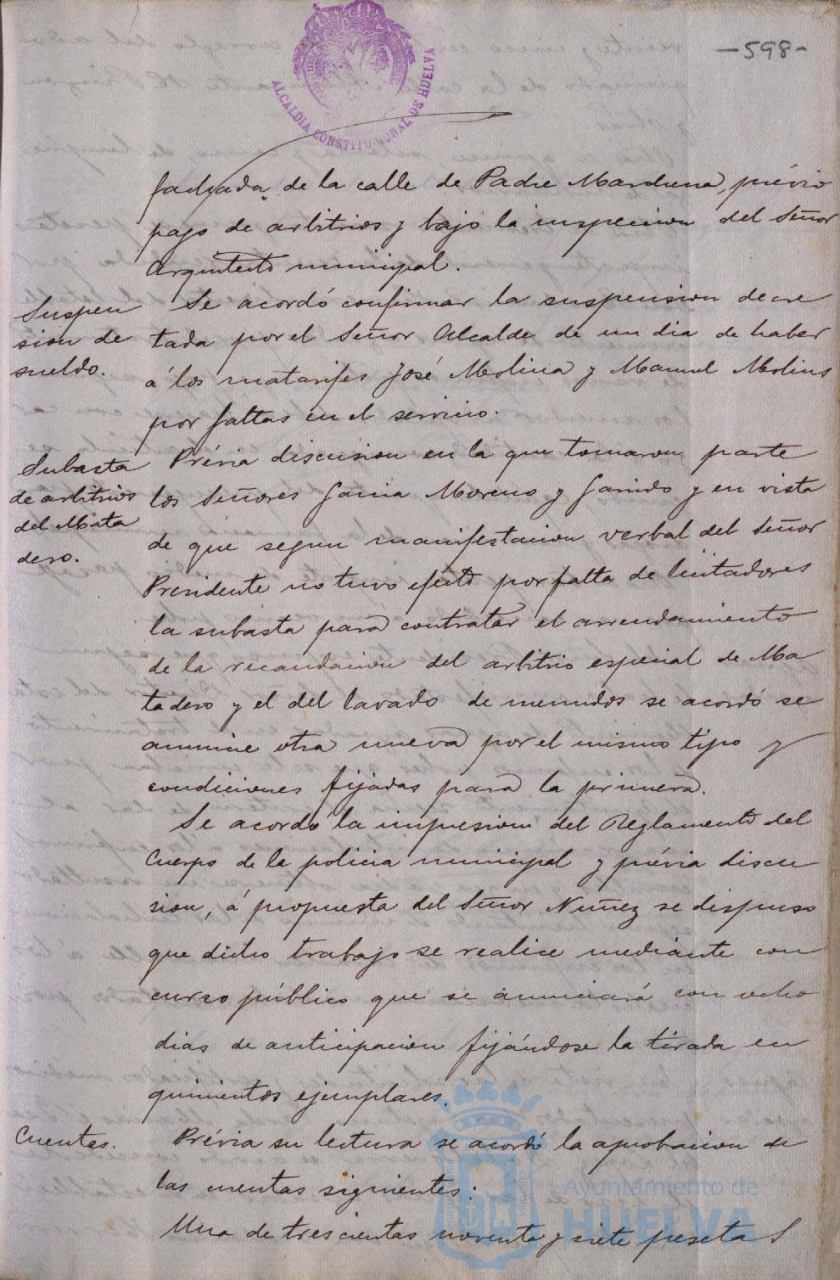 -598-
ALCALDIA CONSTITUCIONAL DE HUELVA
fachada de la calle de Padre Marchena, prévio
pago de arbitrios y bajo la inspeccion del Señor
Arquitecto municipal.
Suspen
sion de
sueldo.
Se acordó confirmar la suspension decre
tada por el Señor Alcalde de un dia de haber
á los matarifes José Molina y Manuel Molins
por faltas en el servicio.
Subasta
de arbitrios
del Mata
dero.
Prévia discusion en la que tomaron parte
los Señores Garcia Moreno y Garrido y en vista
de que segun manifestacion verbal del Señor
Presidente no tuvo efecto por falta de licitadores
la subasta para contratar el arrendamiento
de la recaudacion del arbitrio especial de Ma
tadero y el del lavado de menudos se acordó se
anuncie otra nueva por el mismo tipo y
condiciones fijadas para la primera.
Se acordó la impresion del Reglamento del
Cuerpo de la policia municipal y prévia discu
sion, á propuesta del Señor Nuñez se dispuso
que dicho trabajo se realice mediante con
curso público que se anunciará con ocho
dias de anticipacion fijándose la tirada en
quinientos ejemplares.
Cuentas.
Prévia su lectura se acordó la aprobacion de
las cuentas siguientes:
Una de trescientas noventa y siete pesetas
Ayuntamiento de
HUELVA